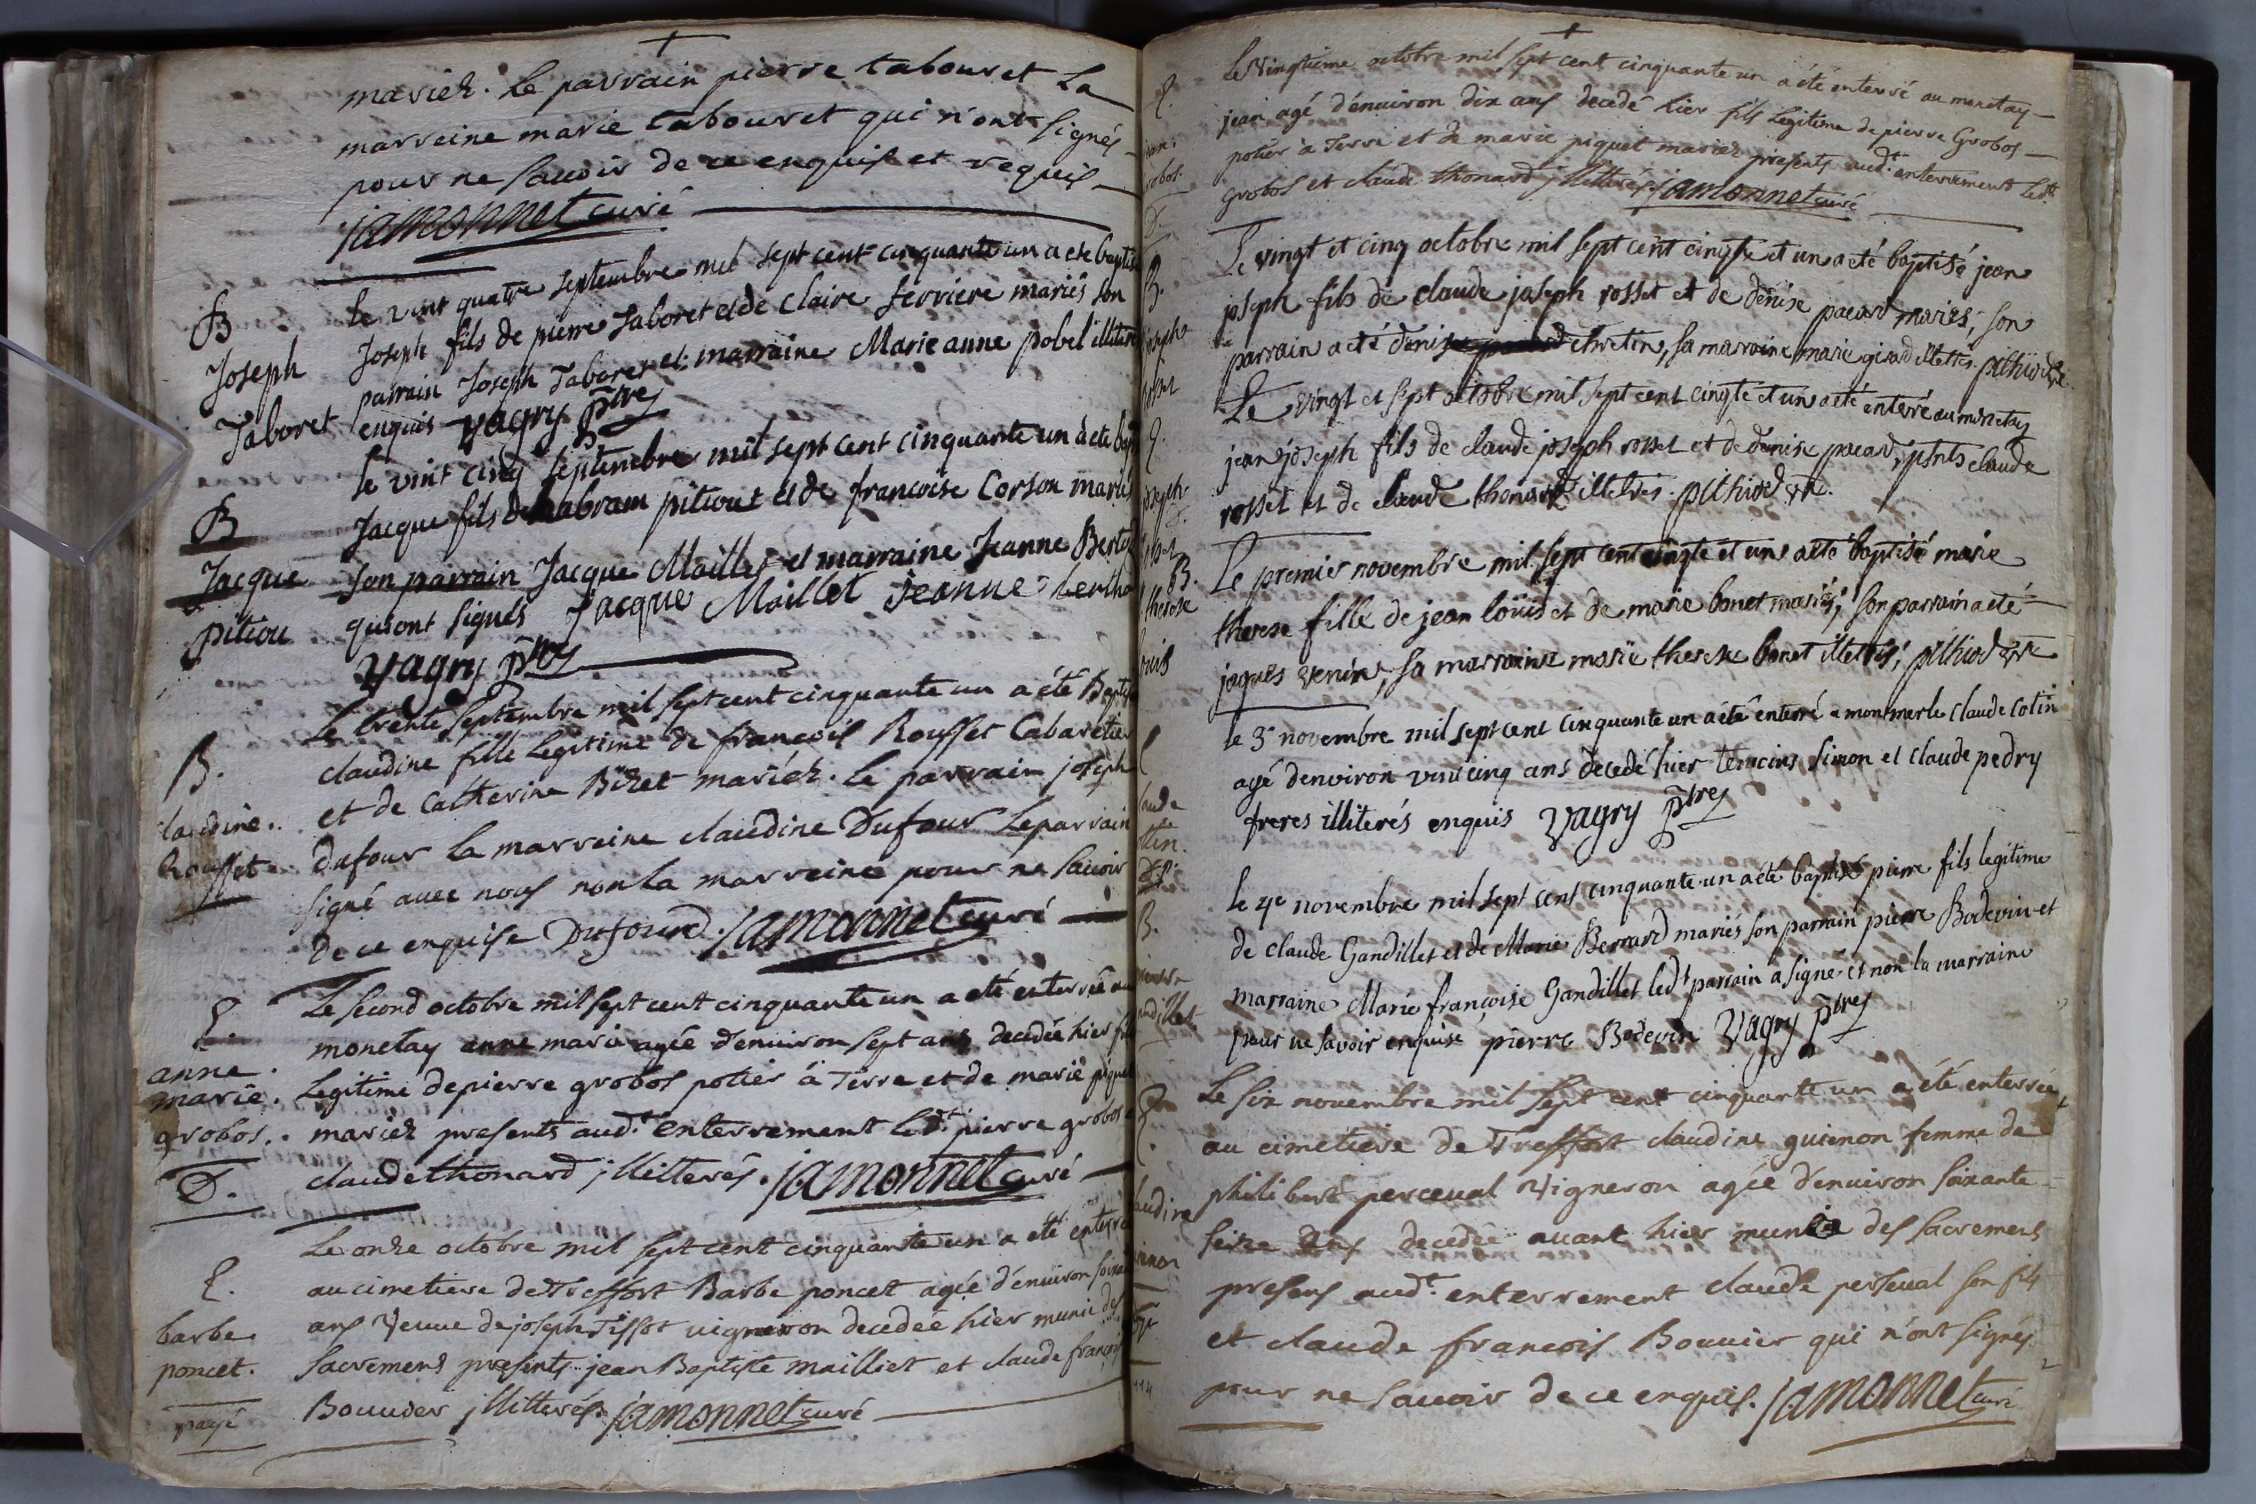 +
mariez. le parrain pierre tabouret La
marreine marie tabouret qui n'ont signés
pour ne scavoir de ce enquis et requis
jamonnet curé
B
Joseph
Taboret
le vint quatre septembre mil sept cent cinquante un a ete baptisé
Joseph fils de pierre Taboret et de Claire ferriere mariés son
parrain Joseph Taboret et marraine Marie anne pobel illiteres
enquis Vagry ptre
B
Jacque
pitiou
le vint cinq septembre mil sept cent cinquante un à ete
Jacque fils de habram pitiout et de francoise Corson mariés
son parrain Jacque Maillet et marraine Jeanne
qui ont signés Jacque Maillet Jeanne
Vagry ptre
B.
claudine.
Rousset
Le trente septembre mil sept cent cinquante un a été Baptisée
claudine fille legitime de françois Rousset Cabaretier
et de Catherine Bizet mariez. le parrain joseph
dufour la marreine claudine Dufour Le parrain
signé avec nous non la marreine pour ne scavoir
de ce enquise Dufourd. jamonnet curé
E.
anne.
marie.
grobos.
D.
Le second octobre mil sept cent cinquante un a eté enterrée au
monetay anne marie agée d'environ sept ans decedée hier
Legitime de pierre grobos potier à Terre et de marie piquet
mariez presents aud.t enterrement led.t pierre grobos
claude thonard jllitterés. jamonnet curé
E.
barbe
poncet.
payé
Le onze octobre mil sept cent cinquante un a eté enterrée
au cimetiere de Treffort Barbe poncet agée d'environ
ans Veuve de joseph Tissot vigneron decedée hier munie des
sacremens presents jean Baptiste mailliet et claude françois
Bouvier jllitterés. jamonnet curé
+
Le Vingtieme octobre mil sept cent cinquante un a été enterré au monetay
jean agé d'environ dix ans decedé hier fils Legitime de pierre Grobos
potier à Terre et de marie piquet mariez presents aud.t enterrement led.t
Grobos et claude thonard jllitterés jamonnet curé
B.
Le vingt et cinq octobre mil sept cent cinqte et un a eté baptisé jean
joseph fils de claude joseph rosset et de denise pacard mariés; son
parrain a eté denis chretin, sa marraine marie girod illettrés. pithiod vre
E.
Le vingt et sept octobre mil sept cent cinqte et un a eté enterré au monetay
jean joseph fils de claude joseph rosset et de denise pacard, psnts claude
rosset et de claude thonard illetrés. pithiod vre.
B.
therese
Le premier novembre mil sept cent cinqte et un a eté baptisé marie
therese fille de jean loüis et de marie bonet mariés; son parrain a eté
jaques venin; sa marraine marie therese bonet illettrés; pithiod vre
le 3e novembre mil sept cent cinquante un a ete enterré a montmerle Claude Colin
agé denviron vint cinq ans decedé hier temoins Simon et Claude pedry
freres illiterés enquis Vagry ptre
B.
le 4e novembre mil sept cent cinquante un a eté baptisé pierre fils legitime
de claude Gandillet et de Marie Berrard mariés son parrain pierre Bodevin et
marraine Marie francoise Gandillet led.t parrain a signé et non la marraine
pour ne savoir enquise pierre Bodevin Vagry ptre
E.
Le six novembre mil sept cent cinquante un a été enterrée
au cimetiere de Treffort claudine guinon femme de
philibert perceval Vigneron agée d'environ soixante
seize ans decedée avant hier munie des sacremens
presens aud.t enterrement claude perseval son fils
et claude francois Bouvier qui n'ont signés
pour ne scavoir de ce enquis. jamonnet curé